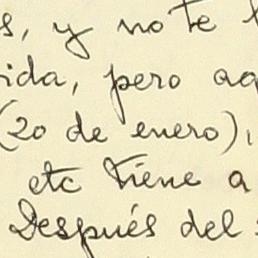 s, y no te
ida, pero aq
(20 de enero),
etc tiene a
Después del